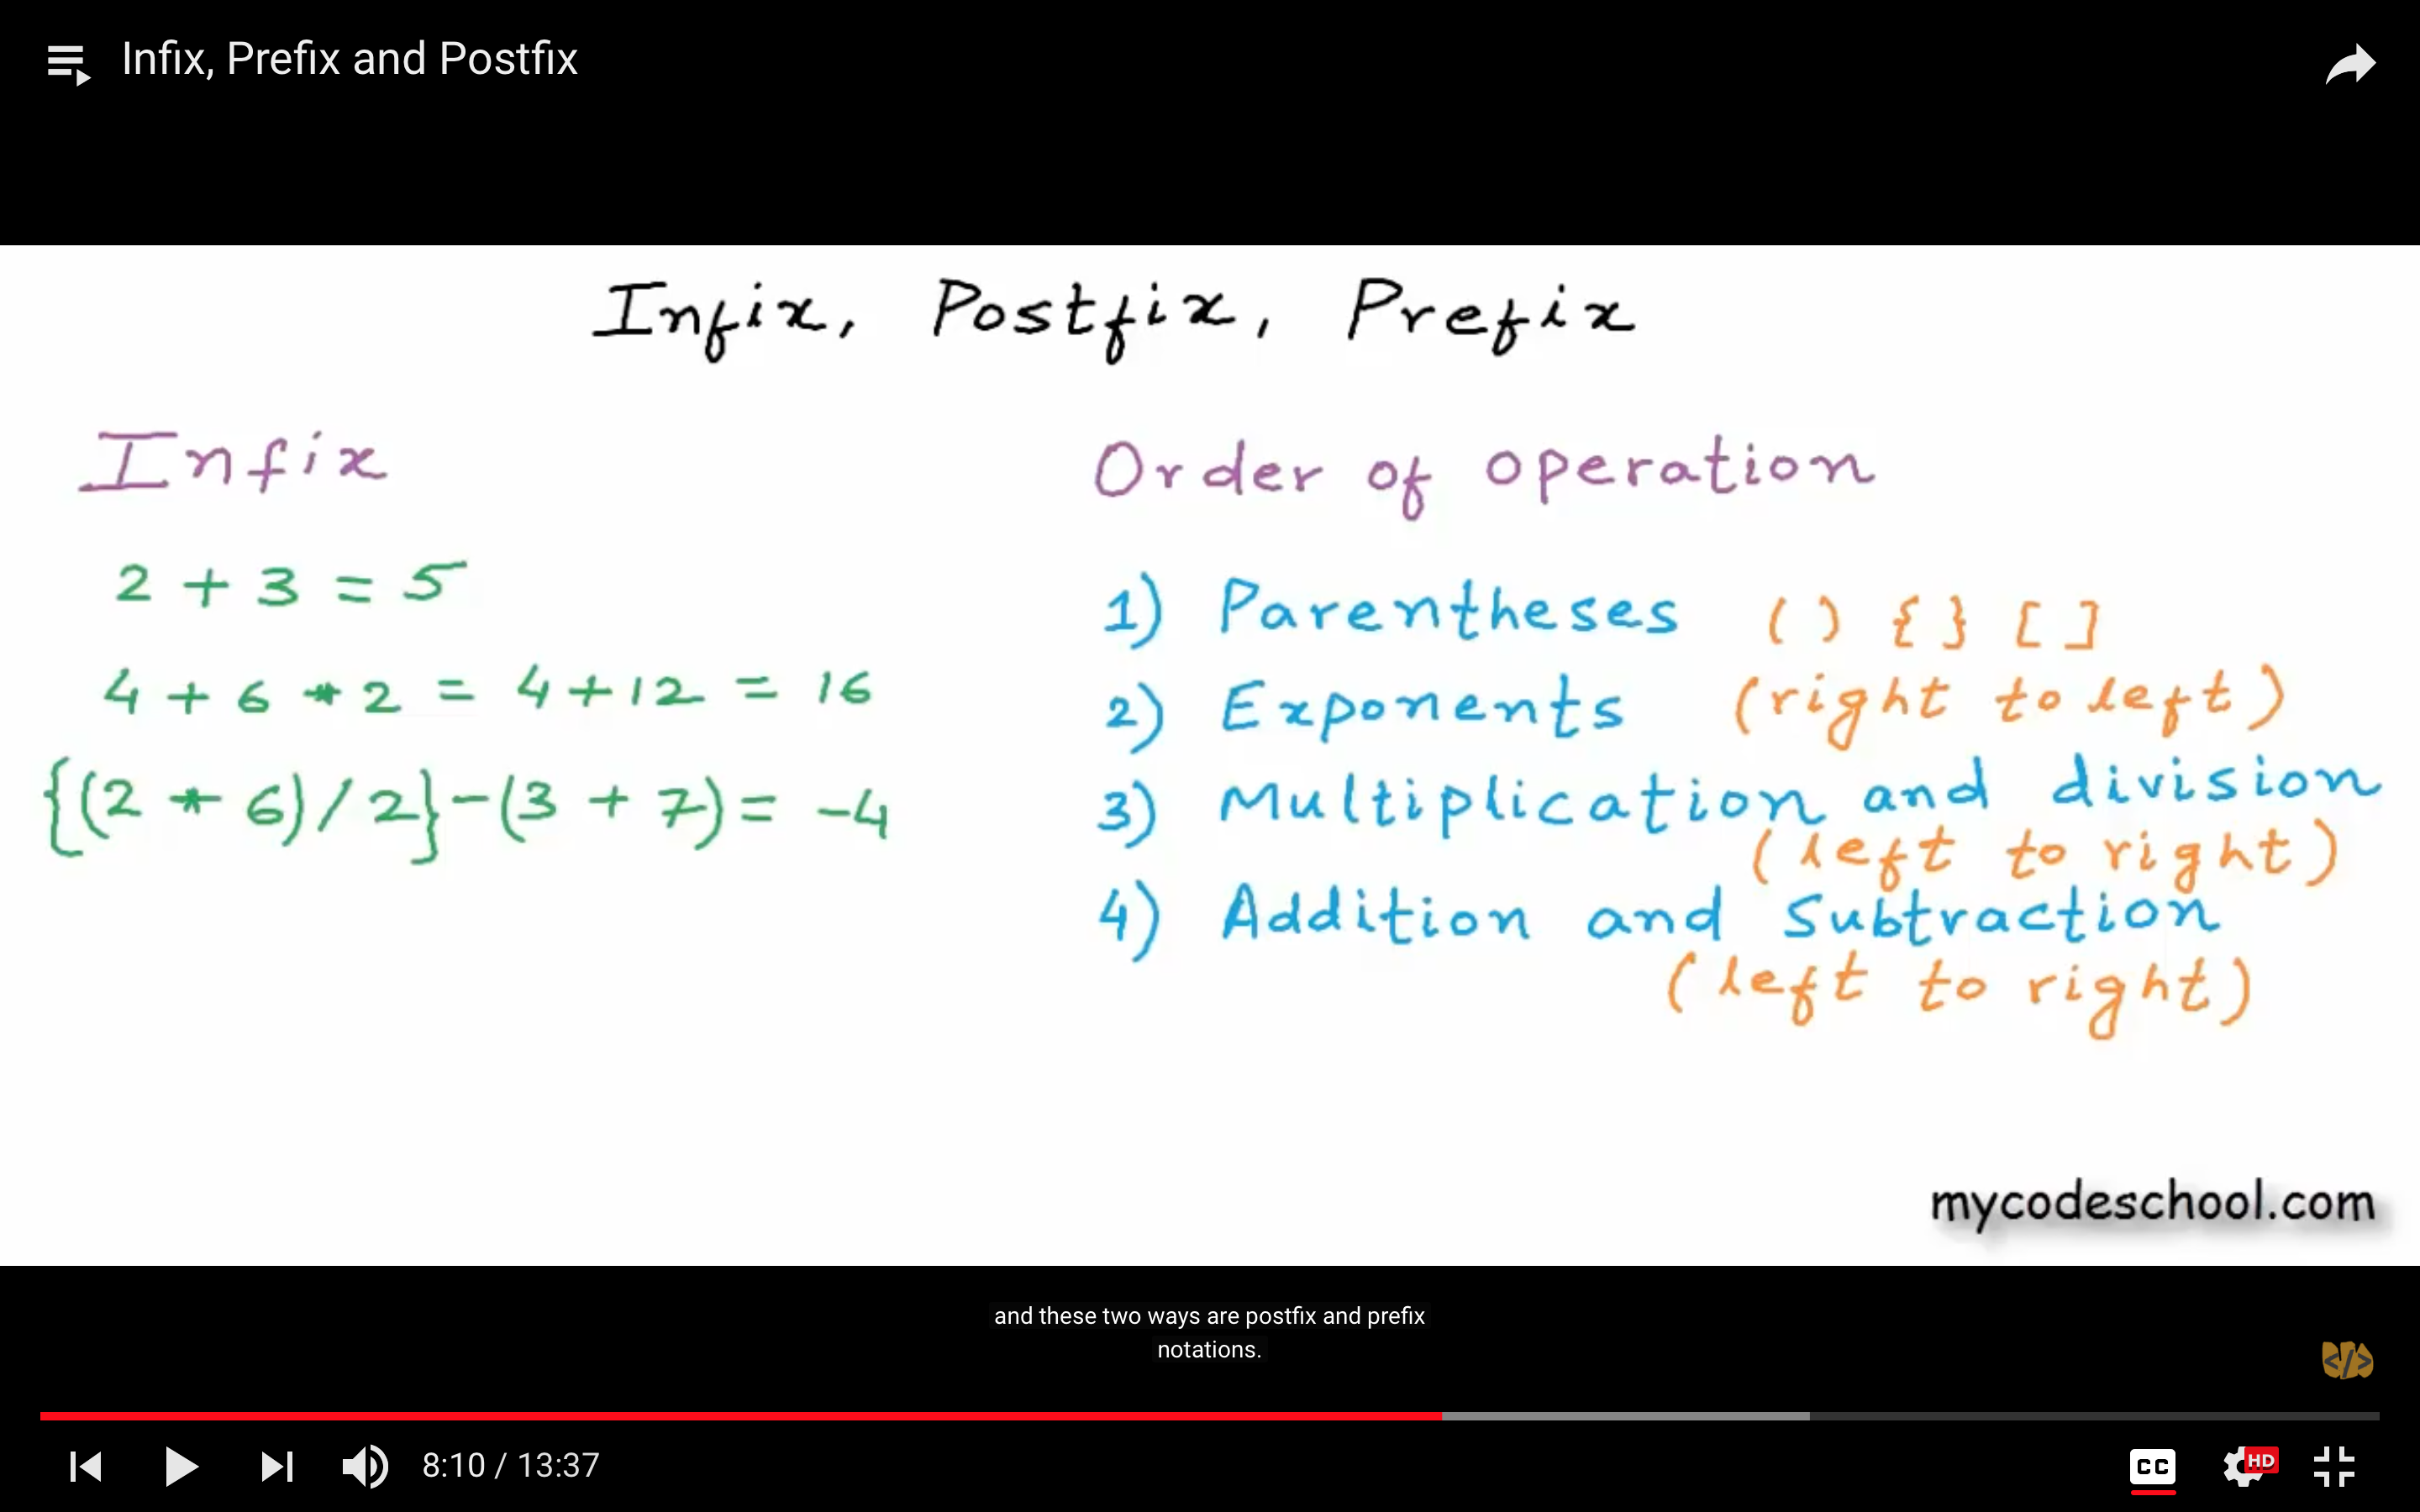 Infix, Prefix and Postfix
Infix, Postfix, Prefix
Infix
2 + 3 = 5
4 + 6 * 2 = 4 + 12 = 16
{(2 * 6) / 2} - (3 + 7) = -4
Order of operation
1) Parentheses () {} []
2) Exponents (right to left)
3) Multiplication and division
(left to right)
4) Addition and Subtraction
(left to right)
mycodeschool.com
and these two ways are postfix and prefix
notations.
</>
8:10 / 13:37
CC
HD